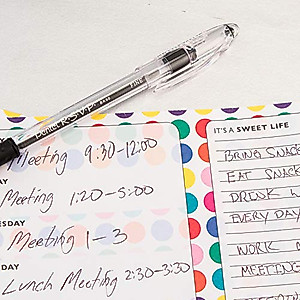 Pentel R.S.V.P. FINE
IT'S A SWEET LIFE
Meeting 9:30-12:00
DAY
Meeting 1:20-5:00
ESDAY
Meeting 1-3
DAY
Lunch Meeting 2:30-3:30
BRING SNAC
EAT SNACK
DRINK W
EVERY DAY
WORK
MEETING